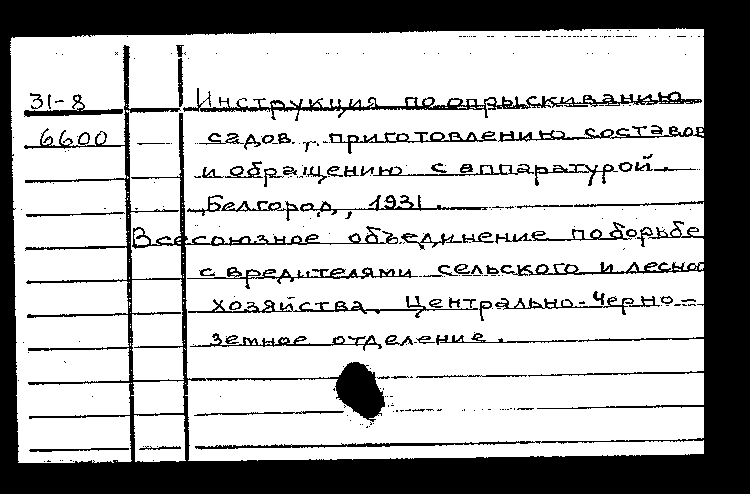 31-8 Инструкция по опрыскиванию
6600 садов, приготовлению составов
и обращению с аппаратурой.
Белгород, 1931.
Всесоюзное объединение по борьбе
с вредителями сельского и лесног
хозяйства. Центрально-Черно-
земное отделение.